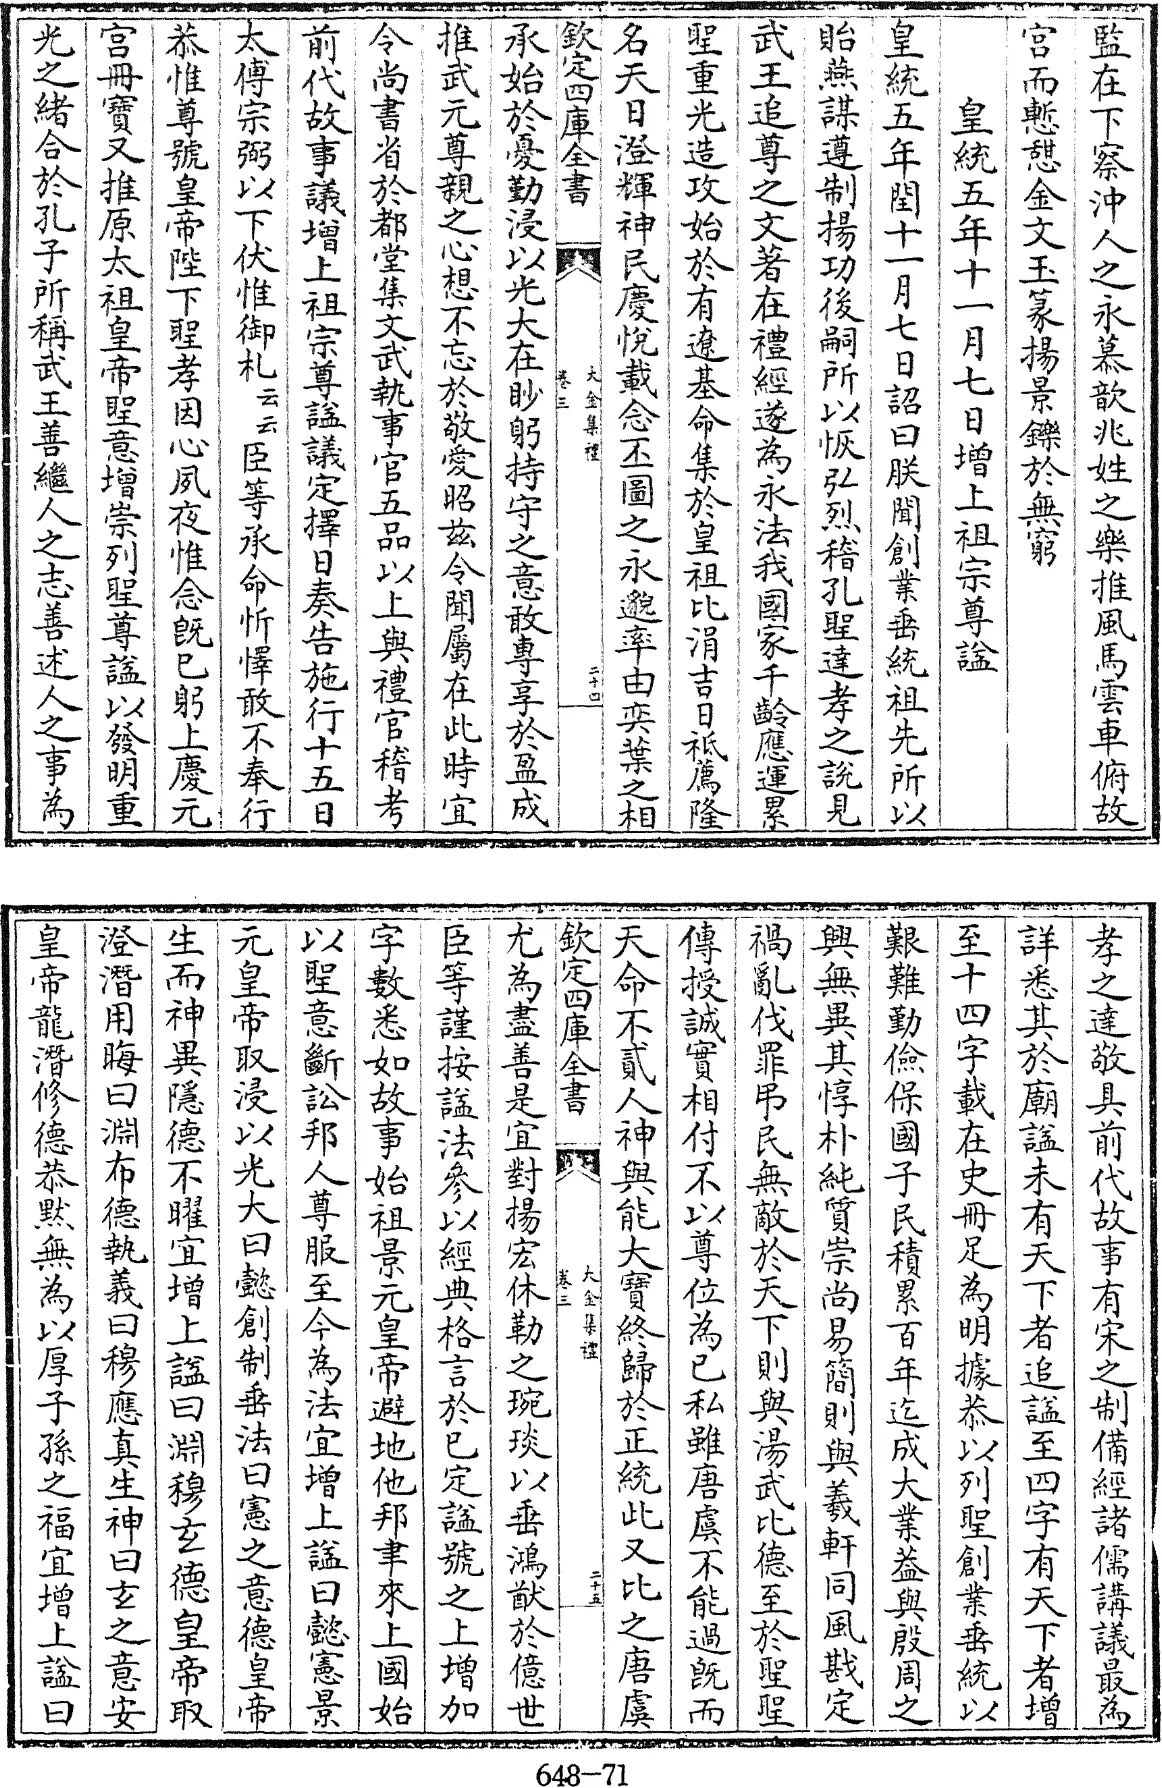 監在下察沖人之永慕歆兆姓之樂推風馬雲車俯故
宮而慙𠎝金文玉篆揚景鑠於無窮
皇統五年十一月七日增上祖宗尊諡
皇統五年閏十一月七日詔曰朕聞創業垂統祖先所以
貽燕謀遵制揚功後嗣所以恢弘烈稽孔聖達孝之說見
武王追尊之文著在禮經遂為永法我國家千齡應運累
聖重光造攻始於有遼基命集於皇祖比涓吉日祗薦隆
名天日澄輝神民慶悅載念丕圖之永邈率由奕葉之相
欽定四庫全書
大金集禮
卷三
二十四
承始於憂勤浸以光大在眇躬持守之意敢專享於盈成
推武元尊親之心想不忘於敬愛昭兹令聞屬在此時宜
令尚書省於都堂集文武執事官五品以上與禮官稽考
前代故事議增上祖宗尊諡議定擇日奏告施行十五日
太傅宗弼以下伏惟御札云云臣等承命忻懌敢不奉行
恭惟尊號皇帝陛下聖孝因心夙夜惟念既已躬上慶元
宮冊寶又推原太祖皇帝聖意增崇列聖尊諡以發明重
光之緒合於孔子所稱武王善繼人之志善述人之事為
孝之達敬具前代故事有宋之制備經諸儒講議最為
詳悉其於廟諡未有天下者追諡至四字有天下者增
至十四字載在史冊足為明據恭以列聖創業垂統以
艱難勤儉保國子民積累百年迄成大業葢與殷周之
興無異其惇朴純質崇尚易簡則與羲軒同風戡定
禍亂伐罪弔民無敵於天下則與湯武比德至於聖聖
傳授誠實相付不以尊位為已私雖唐虞不能過既而
天命不貳人神與能大寶終歸於正統此又比之唐虞
欽定四庫全書
大金集禮
卷三
二十五
尤為盡善是宜對揚宏休勒之琬琰以垂鴻猷於億世
臣等謹按諡法參以經典格言於已定諡號之上增加
字數悉如故事始祖景元皇帝避地他邦聿來上國始
以聖意斷訟邦人尊服至今為法宜增上諡曰懿憲景
元皇帝取浸以光大曰懿創制垂法曰憲之意德皇帝
生而神異隱德不曜宜增上諡曰淵穆玄德皇帝取
澄潛用晦曰淵布德執義曰穆應真生神曰玄之意安
皇帝龍潛修德恭默無為以厚子孫之福宜增上諡曰
648-71